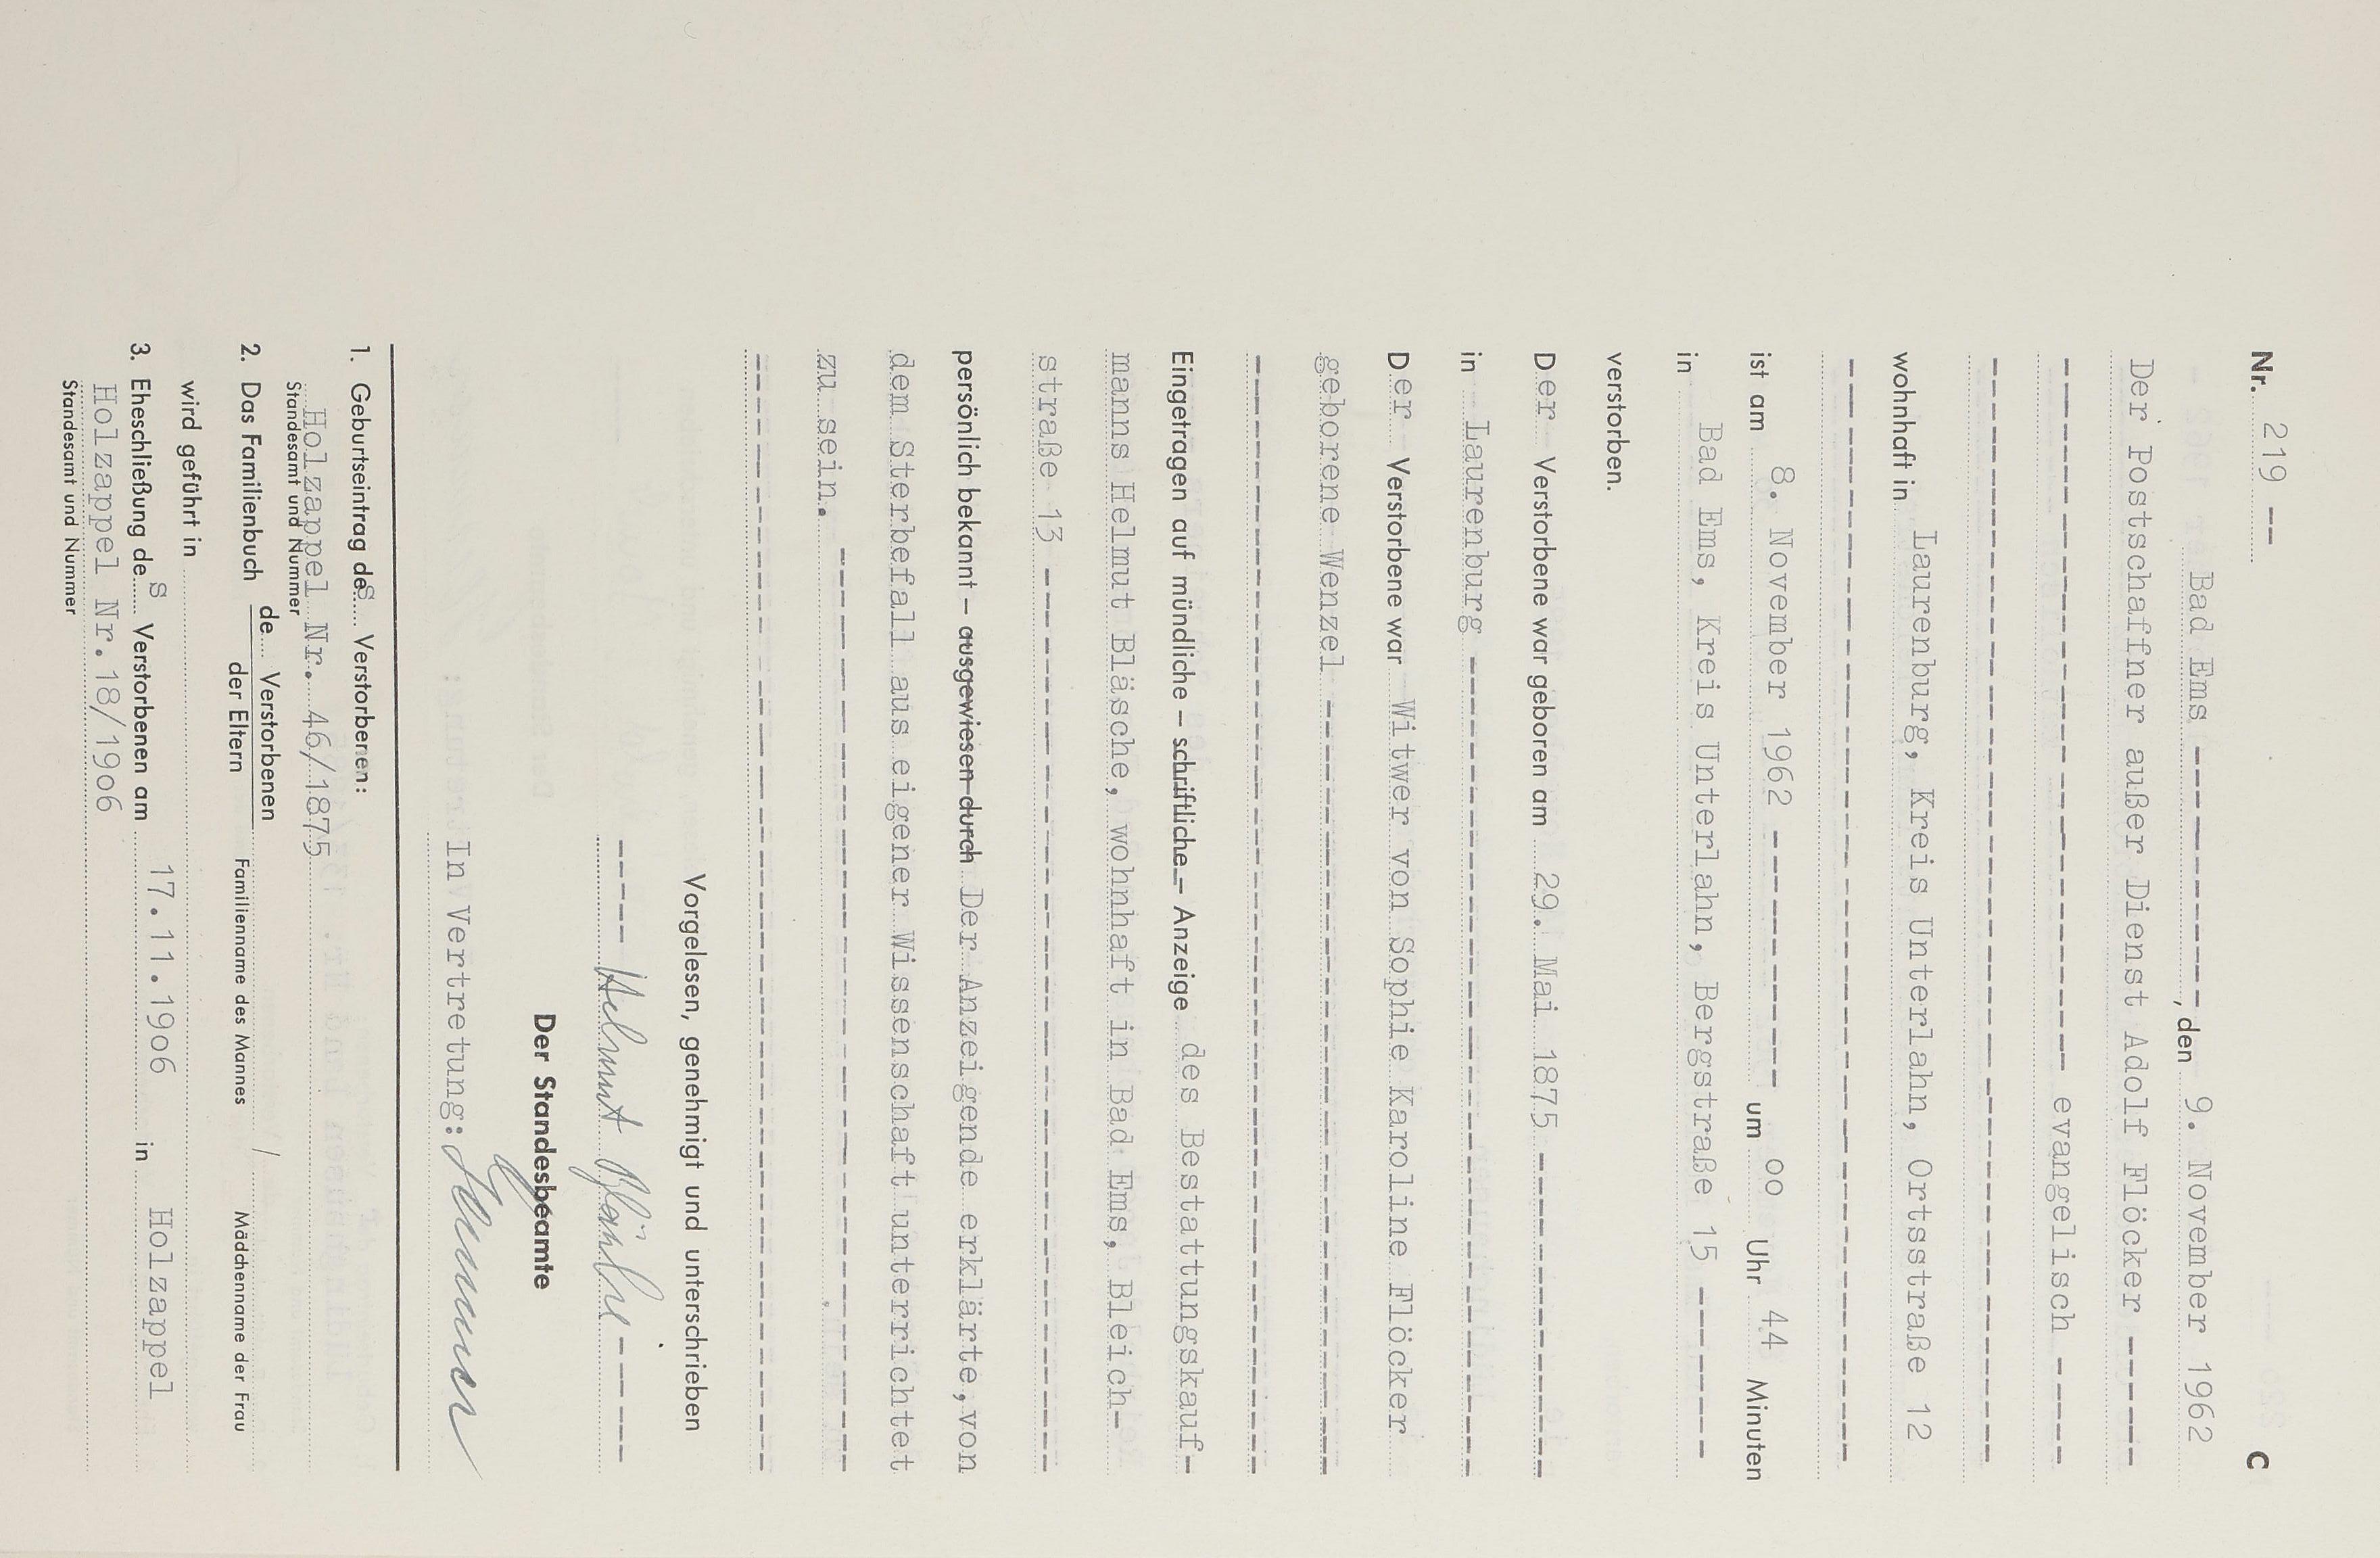 Nr. 219 -- C
Bad Ems ----------, den 9. November 1962
Der Postschaffner außer Dienst Adolf Flöcker -----
---------------------------- evangelisch ----
--------------------------------------------
wohnhaft in Laurenburg, Kreis Unterlahn, Ortsstraße 12
--------------------------------------------
ist am 8. November 1962 ---------- um oo Uhr 44 Minuten
in Bad Ems, Kreis Unterlahn, Bergstraße 15 -------
verstorben.
Der Verstorbene war geboren am 29. Mai 1875 -------------
in Laurenburg --------------------------------
Der Verstorbene war Witwer von Sophie Karoline Flöcker
geborene Wenzel ------------------------------
--------------------------------------------
Eingetragen auf mündliche – schriftliche – Anzeige des Bestattungskauf-
manns Helmut Bläsche, wohnhaft in Bad Ems, Bleich-
straße 13 -----------------------------------
persönlich bekannt – ausgewiesen durch Der Anzeigende erklärte, von
dem Sterbefall aus eigener Wissenschaft unterrichtet
zu sein. ------------------------------------
--------------------------------------------
Vorgelesen, genehmigt und unterschrieben
---- Helmut Bläsche -----
Der Standesbeamte
In Vertretung:
1. Geburtseintrag des Verstorbenen:
Holzappel Nr. 46/1875
Standesamt und Nummer
2. Das Familienbuch de Verstorbenen
der Eltern
/
Familienname des Mannes Mädchenname der Frau
wird geführt in
3. Eheschließung des Verstorbenen am 17.11.19o6 in Holzappel
Holzappel Nr.18/19o6
Standesamt und Nummer